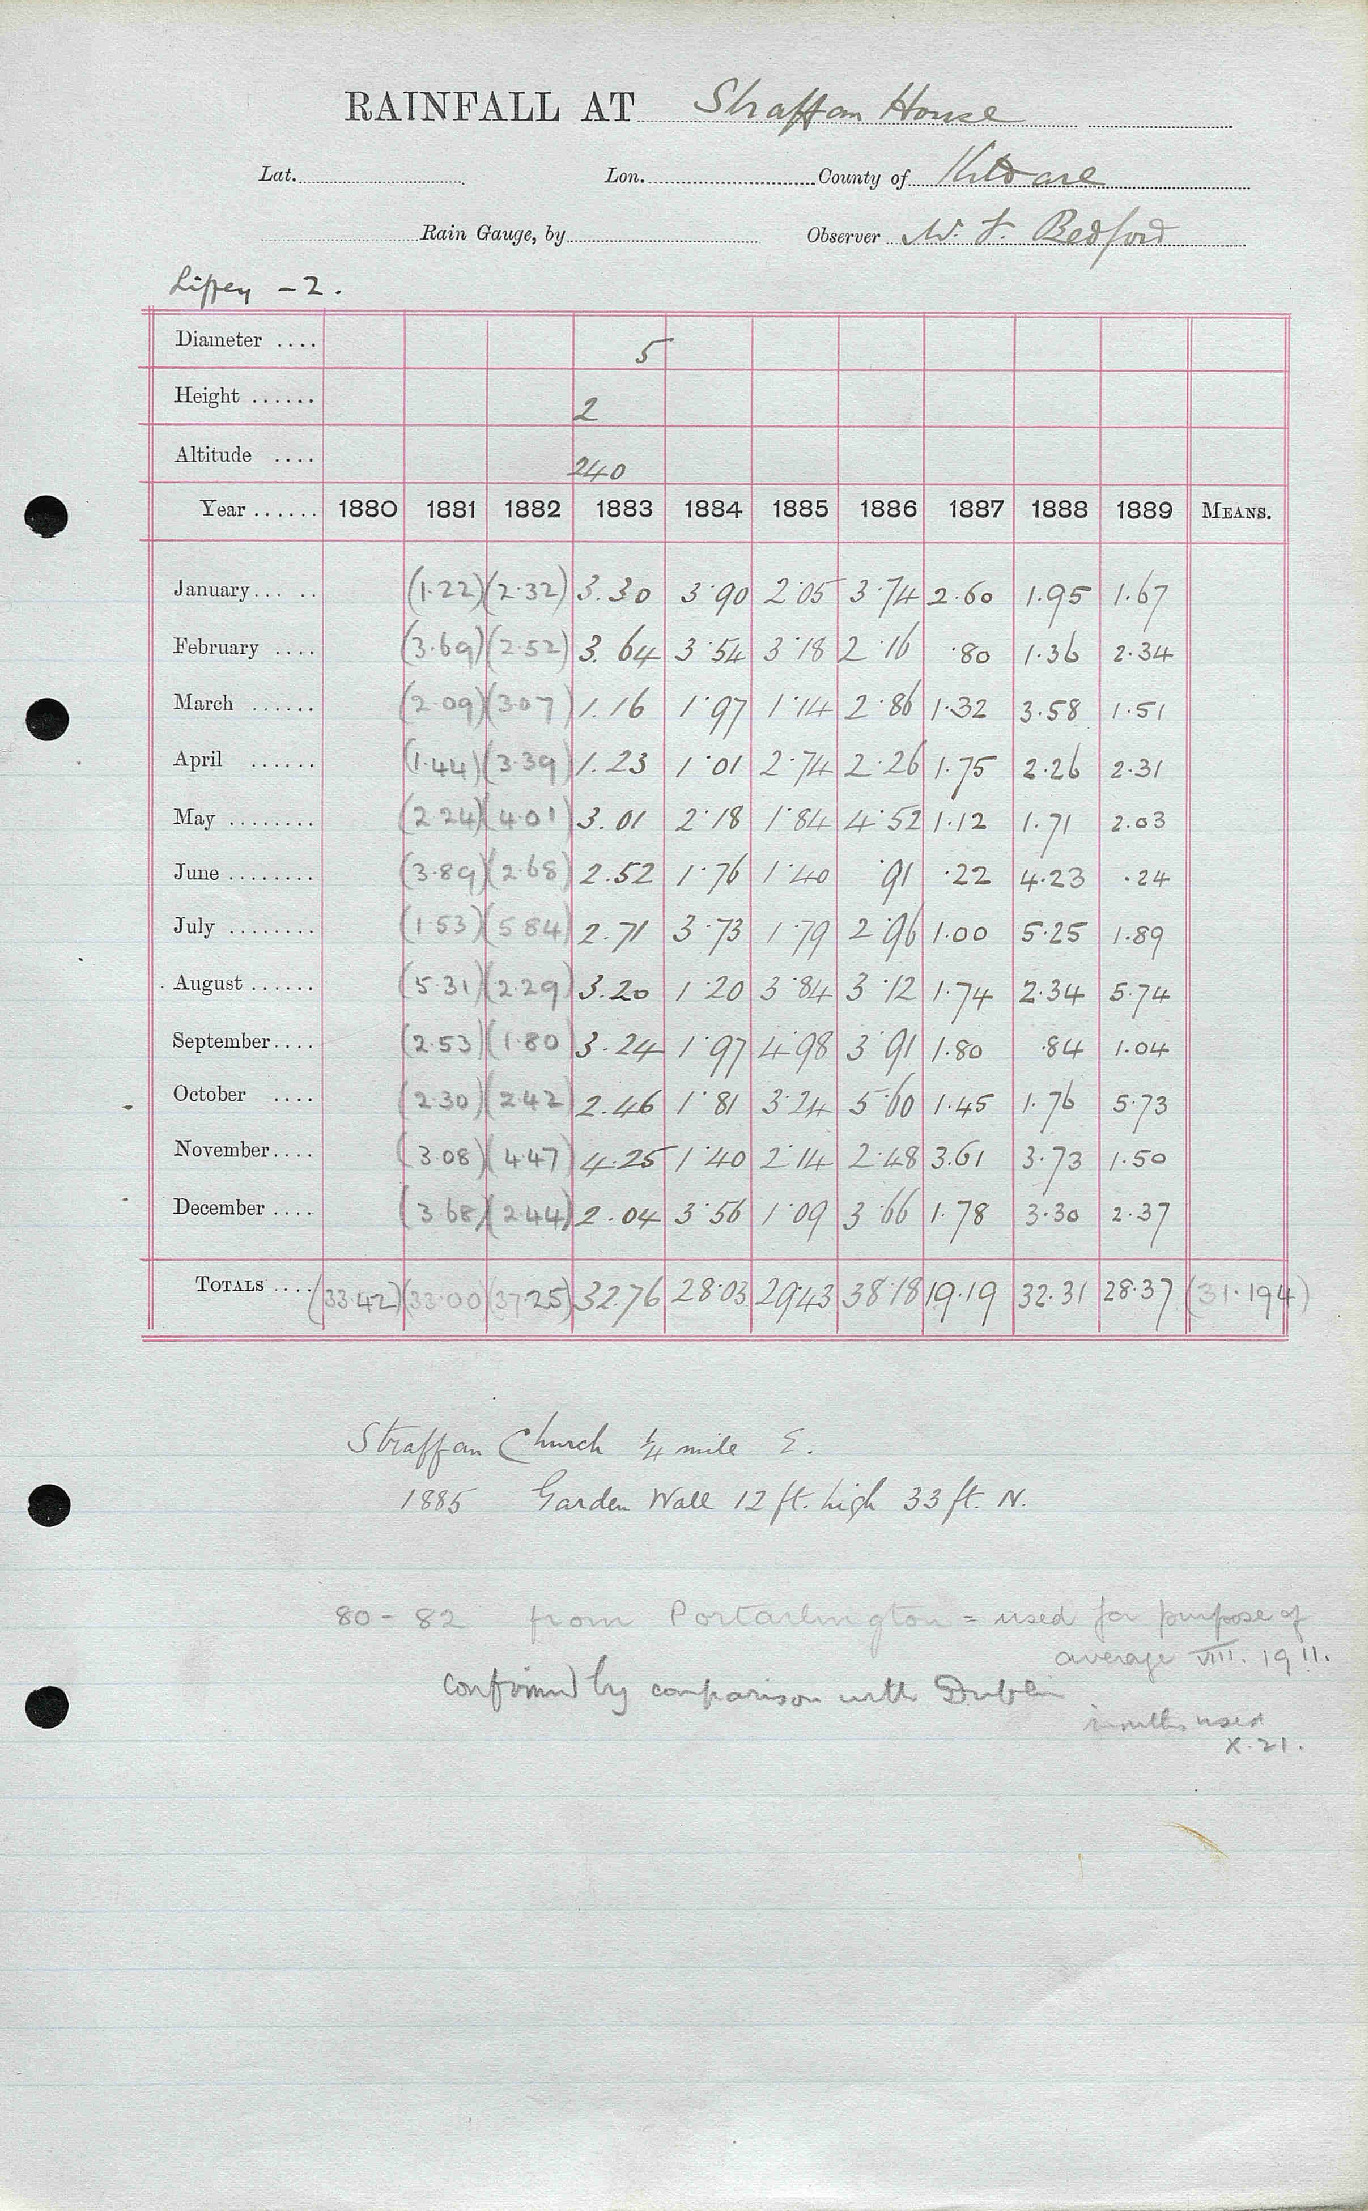 RAINFALL AT Straffan House
Lat. Lon. County of Kildare
Rain Gauge, by Observer W. F. Bedford
Liffey - 2.
Diameter .... 5
Height ...... 2
Altitude .... 240
Year ...... 1880 1881 1882 1883 1884 1885 1886 1887 1888 1889 MEANS.
January... .. (1.22) (2.32) 3.30 3.90 2.05 3.74 2.60 1.95 1.67
February .... (3.69) (2.52) 3.64 3.54 3.18 2.16 .80 1.36 2.34
March ...... (2.09) (3.07) 1.16 1.97 1.14 2.86 1.32 3.58 1.51
April ...... (1.44) (3.39) 1.23 1.01 2.74 2.26 1.75 2.26 2.31
May ........ (2.24) (4.01) 3.01 2.18 1.84 4.52 1.12 1.71 2.03
June ........ (3.89) (2.68) 2.52 1.76 1.40 .91 .22 4.23 .24
July ........ (1.53) (5.84) 2.71 3.73 1.79 2.96 1.00 5.25 1.89
August ...... (5.31) (2.29) 3.20 1.20 3.84 3.12 1.74 2.34 5.74
September.... (2.53) (1.80) 3.24 1.97 4.98 3.91 1.80 .84 1.04
October .... (2.30) (2.42) 2.46 1.81 3.24 5.60 1.45 1.76 5.73
November.... (3.08) (4.47) 4.25 1.40 2.14 2.48 3.61 3.73 1.50
December .... (3.68) (2.44) 2.04 3.56 1.09 3.66 1.78 3.30 2.37
TOTALS .... (33.42) (33.00) (37.25) 32.76 28.03 29.43 38.18 19.19 32.31 28.37 (31.194)
Straffan Church 1/4 mile E.
1885 Garden Wall 12 ft. high 33 ft. N.
80 - 82 from Portarlington = used for purpose of
average VIII. 1911.
Confirmed by comparison with Dublin
months used
X.21.